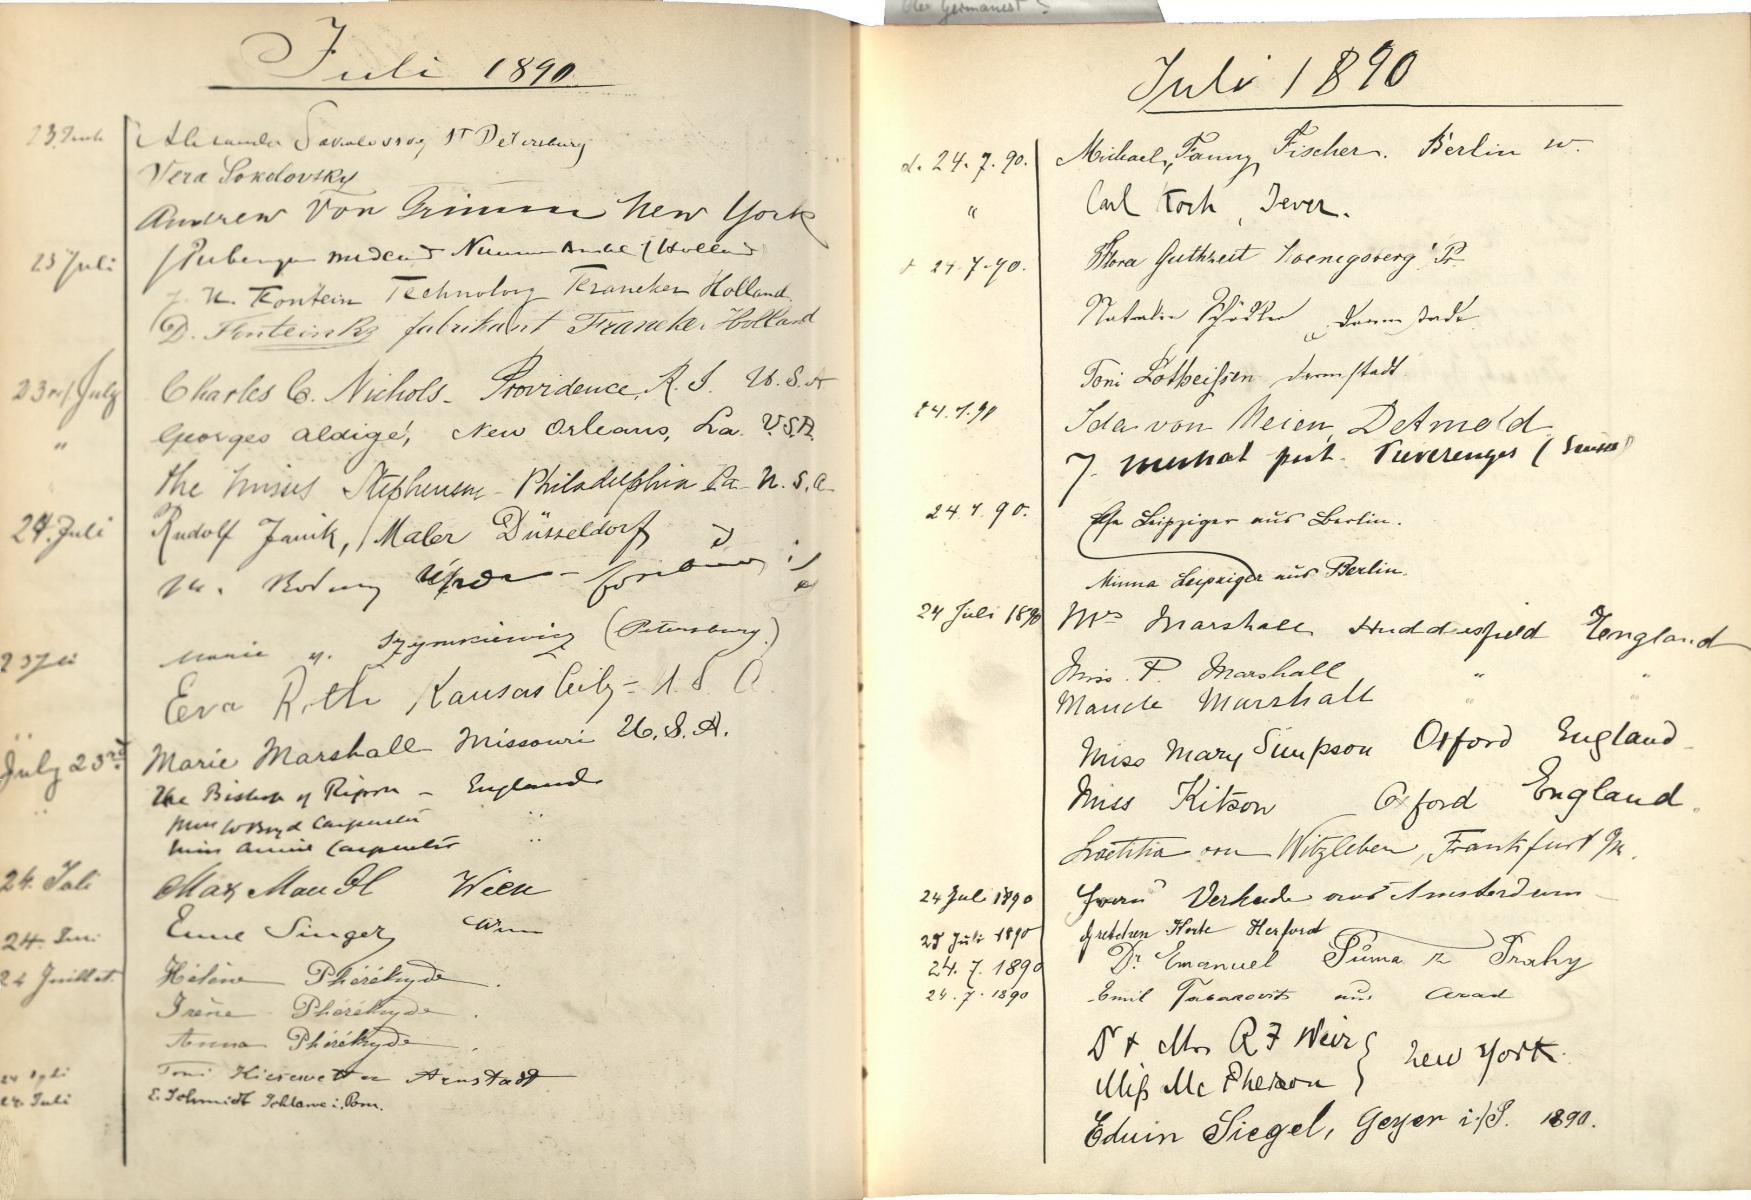 der Germanist?
Juli 1890
Vera Sokolovsky
Andrew Von Grimm New York
23 Juli
Technolog Franeker Holland.
D. Fonteinsky fabrikant Franeker Holland
23rd July Charles C. Nichols - Providence, R. I. U. S. A
" Georges Aldigé, New Orleans, La. U.S.A.
The Misses Stephenson - Philadelphia Pa U. S. A
24. Juli Rudolf Janik, Maler Düsseldorf
Marie v. Szymkiewicz (Petersburg.)
Eva Roth Kansas City - U. S. A.
July 23rd. Marie Marshall Missouri U. S. A.
" The Bishop of Ripon - England
Miss W Boyd Carpenter "
Miss Annie Carpenter "
24. Juli Max Mandl Wien
24. Juni Singer Wien
24 Juillet. Hélène Phérékyde.
Irène Phérékyde.
Anna Phérékyde.
24 Juli Toni Kiesewetter Arnstadt
24. Juli E. Schmidt Schlawe i. Pom.
Juli 1890
d. 24. 7. 90. Michael, Fanny Fischer. Berlin W.
" Carl Koch, Jever.
24. 7. 90. Flora Guthzeit Koenigsberg Pr
Natalie Schödler Darmstadt
Toni Lotheißen Darmstadt.
24. 7. 90 Ida von Meien, Detmold
24. 7. 90. Else Leipziger aus Berlin.
Minna Leipziger aus Berlin.
24 Juli 1890 Mrs Marshall Huddersfield England
Miss. P. Marshall " "
Maude Marshall " "
Miss Mary Simpson Oxford England
Miss Kitson Oxford England.
Laetitia von Witzleben, Frankfurt a/M.
24 Juli 1890 Verkade aus Amsterdam
25 Juli 1890 Gretchen Korte Herford
24. 7. 1890 Dr. Emanuel Tůma z Prahy
24. 7. 1890 Emil Tabakovits aus Arad
Dr & Mrs R F Weir } New York.
Miß Mc Pherson
Edwin Siegel, Geyer i./S. 1890.